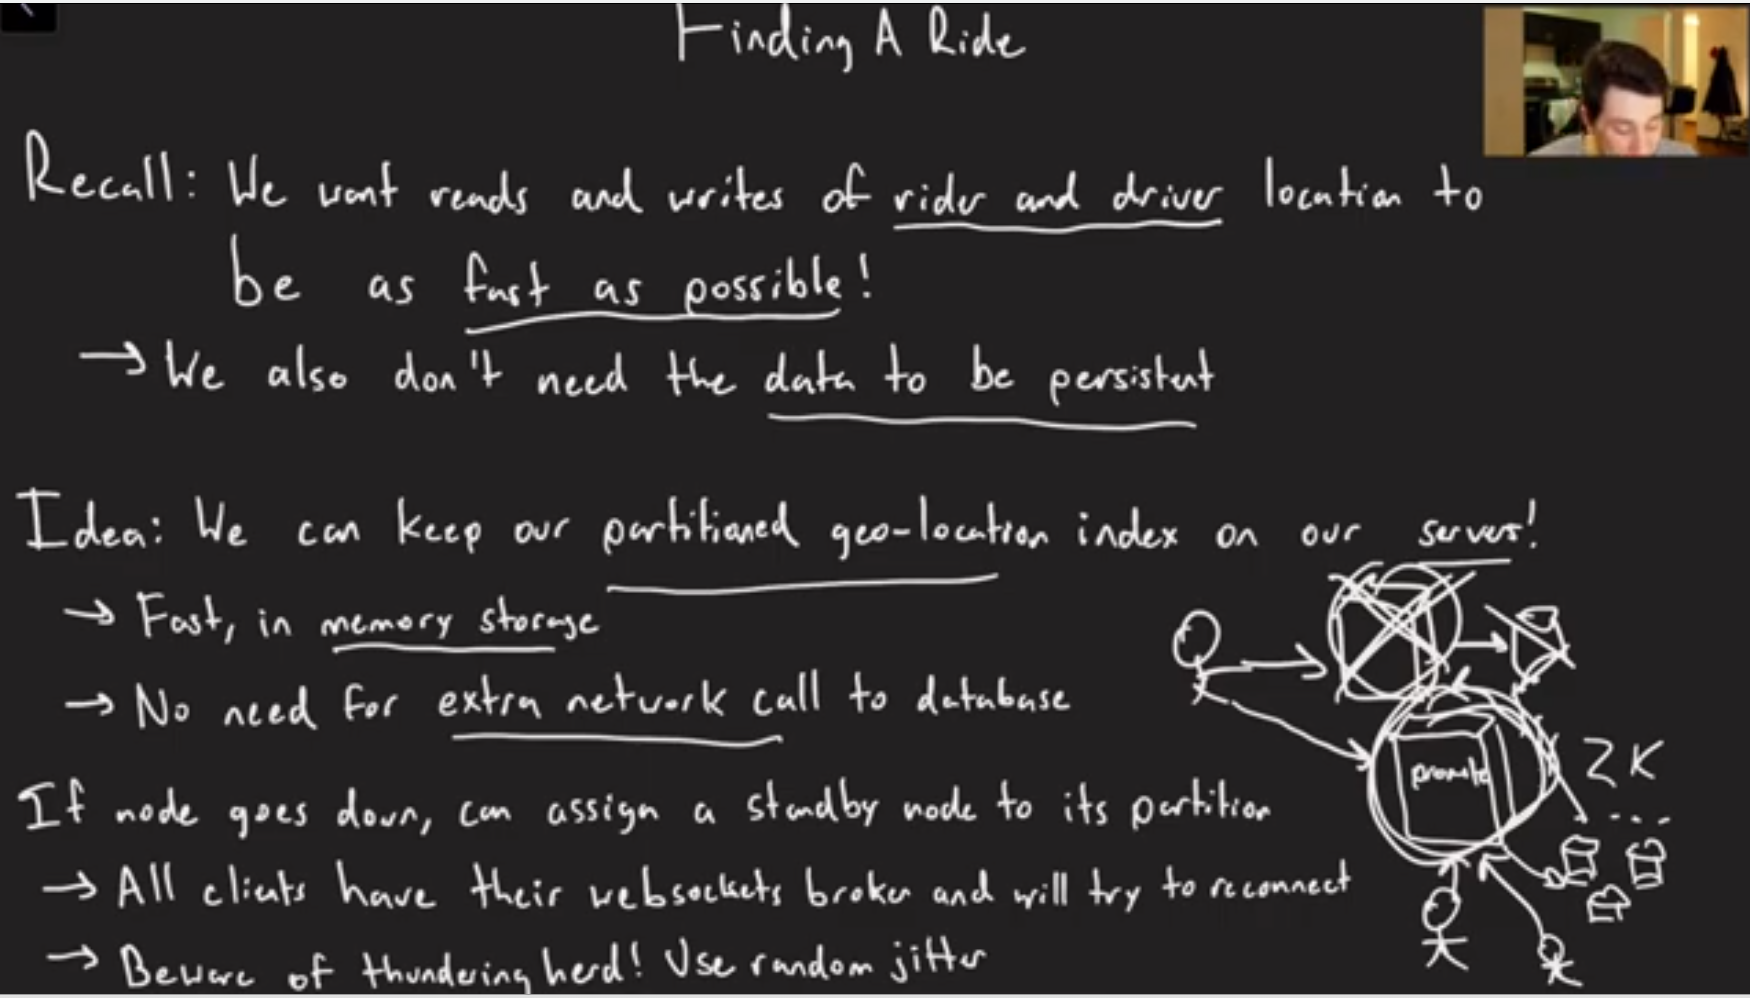 Finding A Ride
Recall: We want reads and writes of rider and driver location to
be as fast as possible!
→ We also don't need the data to be persistent
Idea: We can keep our partitioned geo-location index on our servers!
→ Fast, in memory storage
→ No need for extra network call to database
ZK
...
If node goes down, can assign a standby node to its partition
→ All clients have their websockets broken and will try to reconnect
→ Beware of thundering herd! Use random jitter